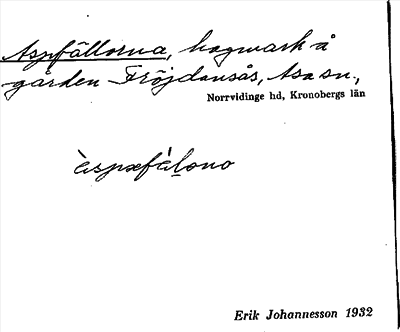 Aspfällorna, hagmark å
gården Fröjdansås, Asa sn.,
Norrvidinge hd, Kronobergs län
àspæfálono
Erik Johannesson 1932